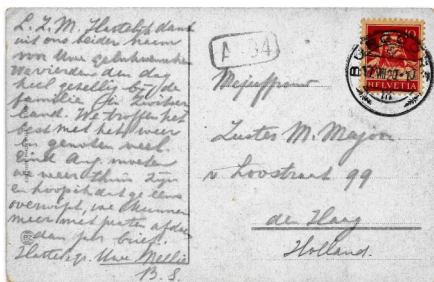 L. Z. M. Hartelijk dank
uit ons beider naam
voor Uwe gelukwenschen
We vierden den dag
heel gezellig bij de
familie in Zwitser
land. We troffen het
best met het weer
en genoten veel.
Eind Aug. moeten
we weer thuis zijn
en hoop ik dat ge eens
overwipt, we kunnen
meer met praten afdoen
dan per brief.
Hartelijk Uwe Nellie
B. S.
A 34
Mejuffrouw
Zuster M. Majoor
v. Loostraat 99
den Haag
Holland.
10
HELVETIA